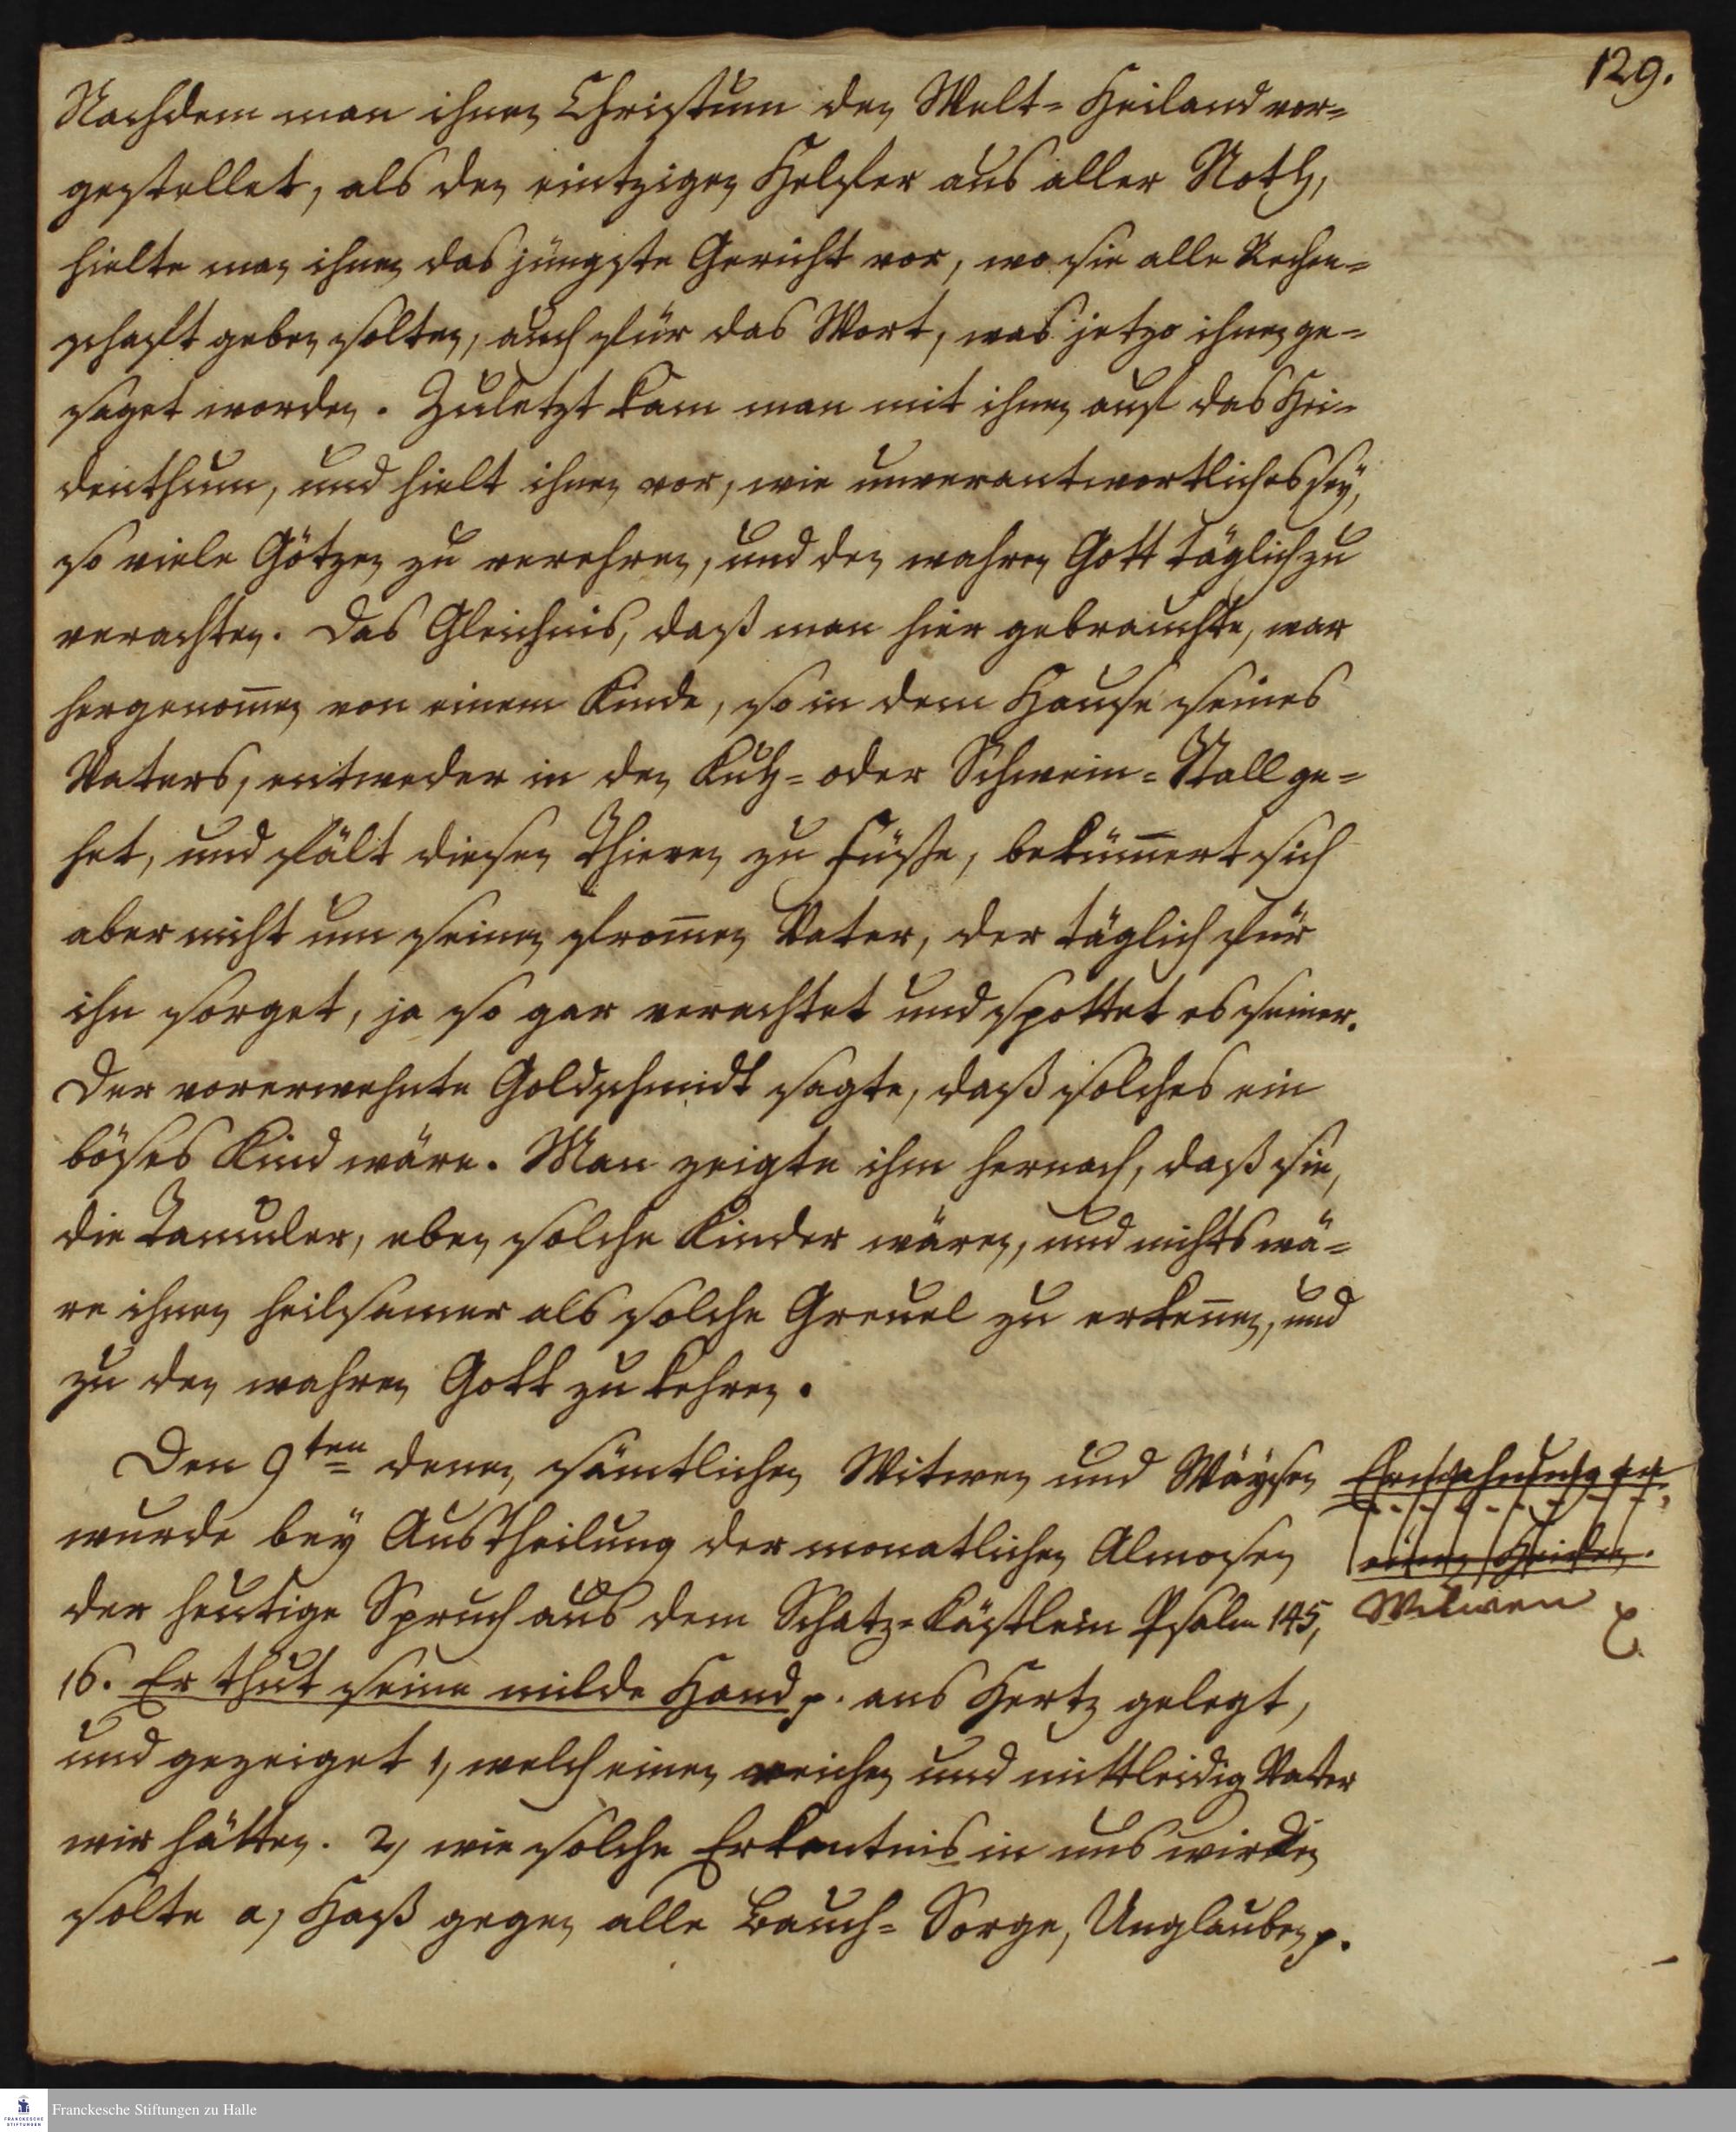 129.
Nachdem man ihnen Christum den Welt-Heiland vor-
gestellet, als den eintzigen Helfer aus aller Noth,
hielte man ihnen das jüngste Gericht vor, wo sie alle Rechen-
schaft geben solten, auch für das Wort, was jetzo ihnen ge-
saget worden. Zuletzt kam man mit ihnen auf das Hei-
denthum, und hielt ihnen vor, wie unverantwortlich es sey,
so viele Götzen zu verehren, und den wahren Gott täglich zu
verachten. Das Gleichnis, daß man hier gebrauchte, war
hergenom̄en von einem Kinde, so in dem Hause seines
Vaters, entweder in den Kuh- oder Schwein-Stall ge-
het, und fält diesen Thieren zu Füße, beküm̄ert sich
aber nicht um seinen from̄en Vater, der täglich für
ihn sorget, ja so gar verachtet und spottet es seiner.
Der vorerwehnte Goldschmidt sagte, daß solches ein
böses Kind wäre. Man zeigte ihm hernach, daß sie,
die Tamuler, eben solche Kinder wären, und nichts wä-
re ihnen heilsamer als solche Greuel zu erken̄en, und
zu den wahren Gott zu kehren.
Den 9ten denen sämtlichen Witwen und Wäysen
wurde bey Austheilung der monatlichen Almosen
der heutige Spruch aus dem Schatz-Kästlein Psalm 145,
16. Er thut seine milde Hand p. ans Hertz gelegt,
und gezeiget 1, welch einen reichen und mittleidig Vater
wir hätten. 2, wie solche Erkentnis in uns wirken
solte a, Haß gegen alle Bauch-Sorge, Unglauben p.
Ermahnung an
einen Heiden.
Witwen